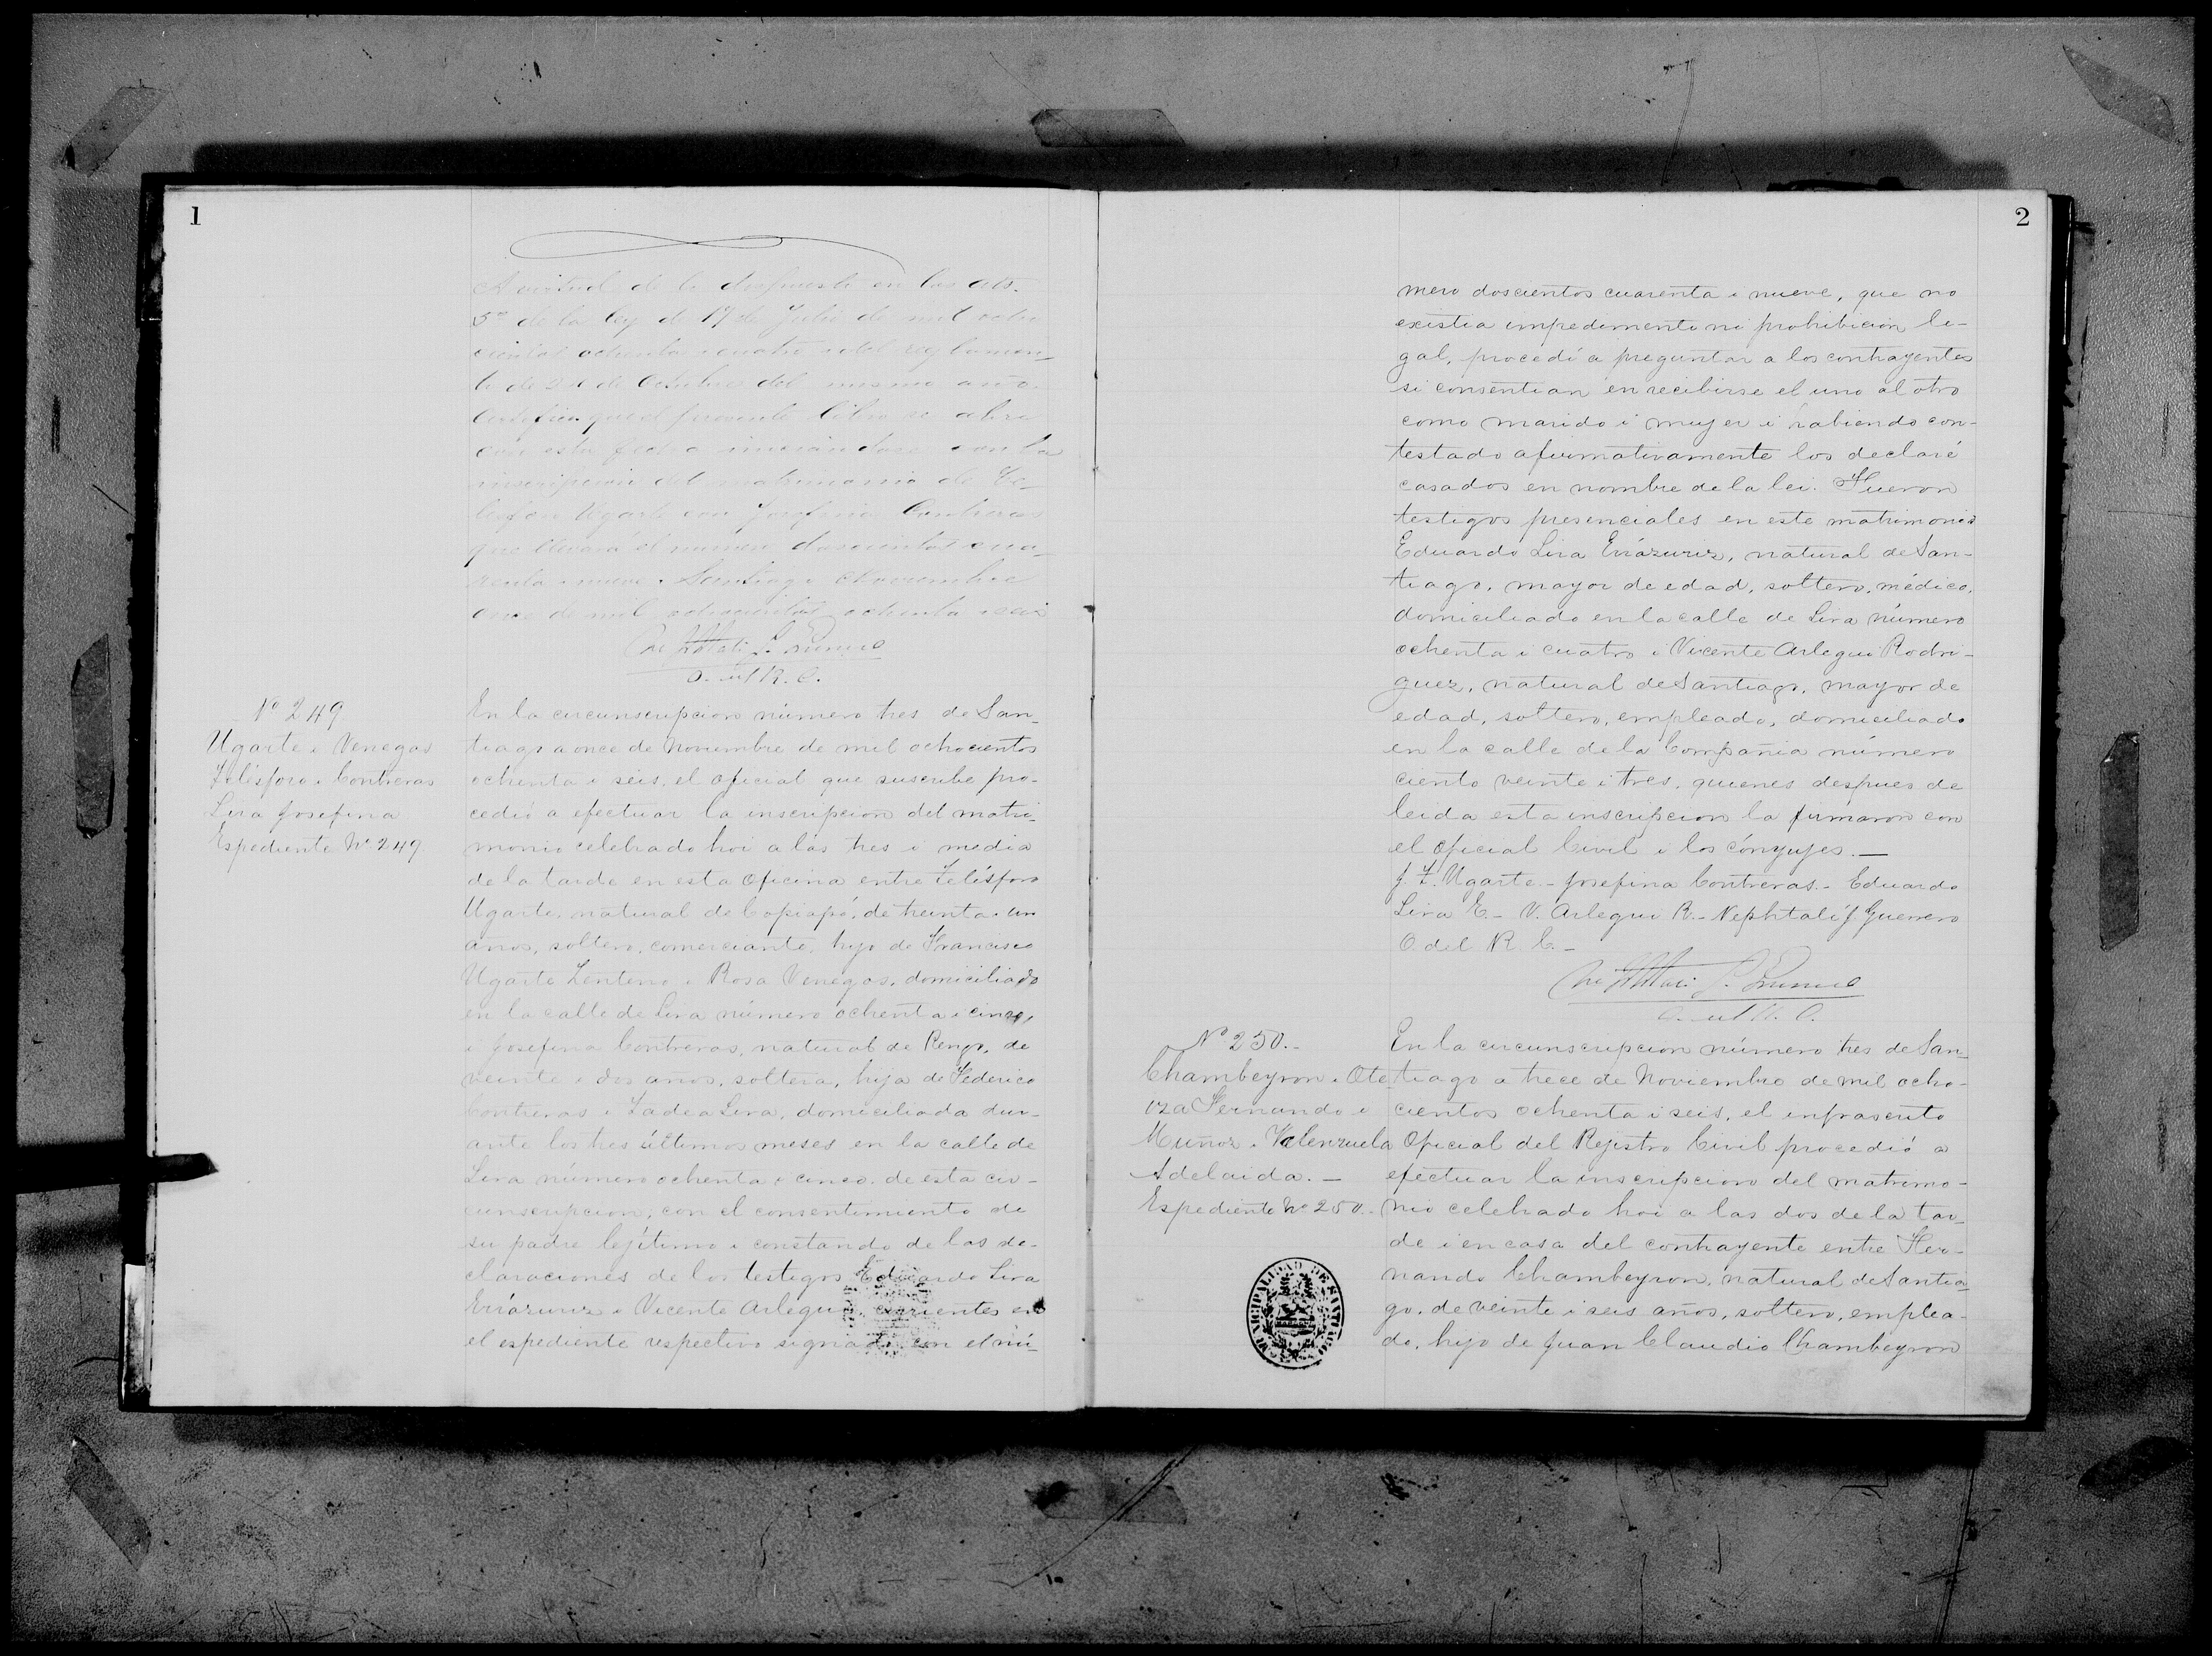 1
A virtud de lo dispuesto en los arts.
5º de la ley de 17 de Julio de mil ocho
cientos ochenta i cuatro i del reglamen-
to de 24 de Octubre del mismo año
certifico que el presente libro se abre
con esta fecha iniciándose con la
inscripcion del matrimonio de Te-
lésforo Ugarte con Josefina Contreras
que llevará el número doscientos cua-
renta i nueve. Santiago Noviembre
once de mil ochocientos ochenta i seis
O. del R. C.
Nº 249
Ugarte i Venegas
Telésforo i Contreras
Lira Josefina
Espediente Nº 249
En la circunscripcion número tres de San-
tiago a once de Noviembre de mil ochocientos
ochenta i seis, el oficial que suscribe pro-
cedió a efectuar la inscripcion del matri-
monio celebrado hoi a las tres i media
de la tarde en esta oficina entre Telésforo
Ugarte, natural de Copiapó, de treinta i un
años, soltero, comerciante, hijo de Francisco
Ugarte Zenteno i Rosa Venegas, domiciliado
en la calle de Lira número ochenta i cinco,
i Josefina Contreras, natural de Rengo, de
veinte i dos años, soltera, hija de Federico
Contreras i Tadea Lira, domiciliada dur-
ante los tres últimos meses en la calle de
Lira número ochenta i cinco, de esta cir-
cunscripcion, con el consentimiento de
su padre lejítimo i constando de las de-
claraciones de los testigos Eduardo Lira
Errázuriz i Vicente Arlegui, corrientes en
el espediente respectivo signado con el nú-
2
mero doscientos cuarenta i nueve, que no
existia impedimento ni prohibicion le-
gal, procedí a preguntar a los contrayentes
si consentian en recibirse el uno al otro
como marido i mujer i habiendo con-
testado afirmativamente los declaré
casados en nombre de la lei. Fueron
testigos presenciales en este matrimonio
Eduardo Lira Errázuriz, natural de San-
tiago, mayor de edad, soltero, médico,
domiciliado en la calle de Lira número
ochenta i cuatro i Vicente Arlegui Rodri-
guez, natural de Santiago, mayor de
edad, soltero, empleado, domiciliado
en la calle de la Compañia número
ciento veinte i tres, quienes despues de
leida esta inscripcion la firmaron con
el oficial Civil i los cónyujes.—
J. T. Ugarte.- Josefina Contreras.- Eduardo
Lira E.- V. Arlegui R.- Nephtalí J. Guerrero
O del R. C.-
O. del R. C.
Nº 250.-
Chambeyron i Ote
iza Fernando i
Muñoz i Valenzuela
Adelaida.—
Espediente Nº 250.-
En la circunscripcion número tres de San-
tiago a trece de Noviembre de mil ocho-
cientos ochenta i seis, el infrascrito
Oficial del Rejistro Civil procedió a
efectuar la inscripcion del matrimo-
nio celebrado hoi a las dos de la tar-
de i en casa del contrayente entre Fer-
nando Chambeyron, natural de Santia-
go, de veinte i seis años, soltero, emplea-
do, hijo de Juan Claudio Chambeyron
MUNICIPALIDAD DE SANTIAGO